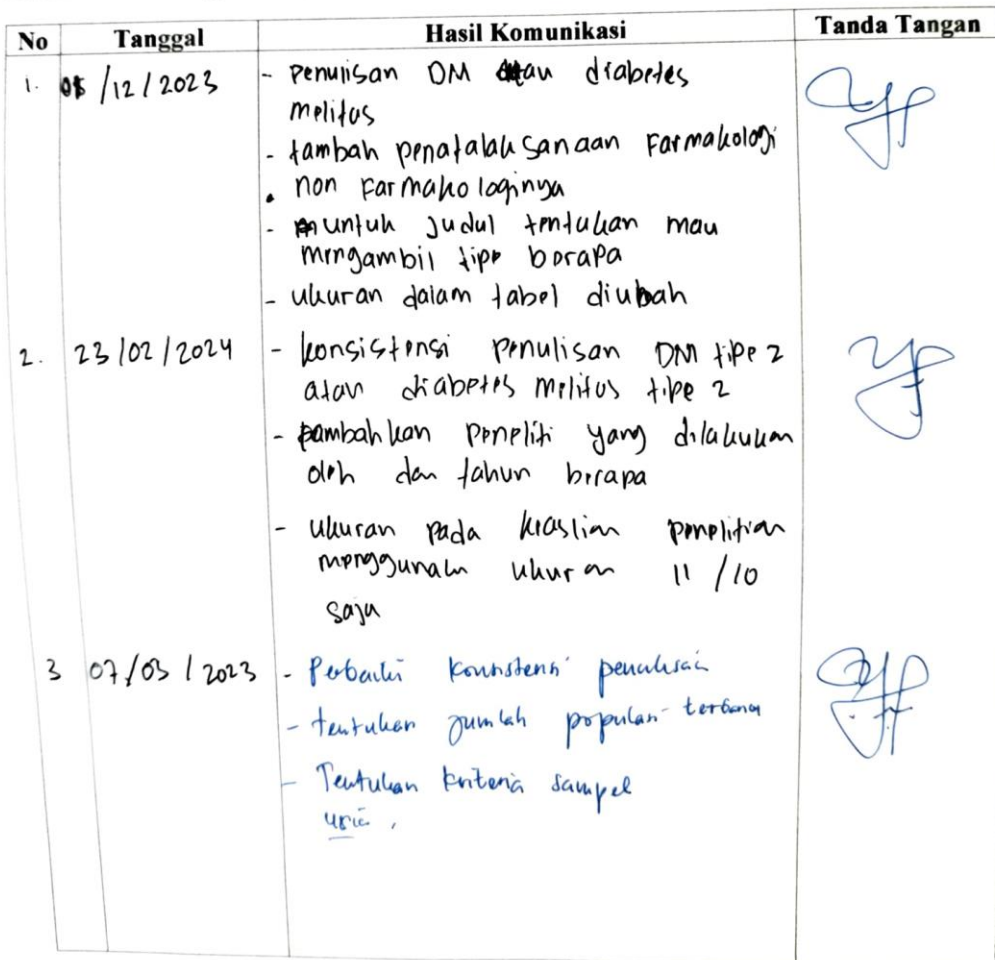 No Tanggal Hasil Komunikasi Tanda Tangan
1. 08/12/2023 - penulisan DM atau diabetes
melitus
- tambah penatalaksanaan Farmakologi
. non Farmakologinya
- untuk Judul tentukan mau
mengambil tipe berapa
- ukuran dalam tabel diubah
2. 23/02/2024 - konsistensi penulisan DM tipe 2
atau diabetes melitus tipe 2
- tambahkan peneliti yang dilakukan
oleh dan tahun berapa
- ukuran pada keaslian penelitian
menggunakan ukuran 11/10
saja
3 07/03/2023 - Perbaiki konsistensi penulisan
- tentukan jumlah populasi
- Tentukan kriteria sampel
usia.